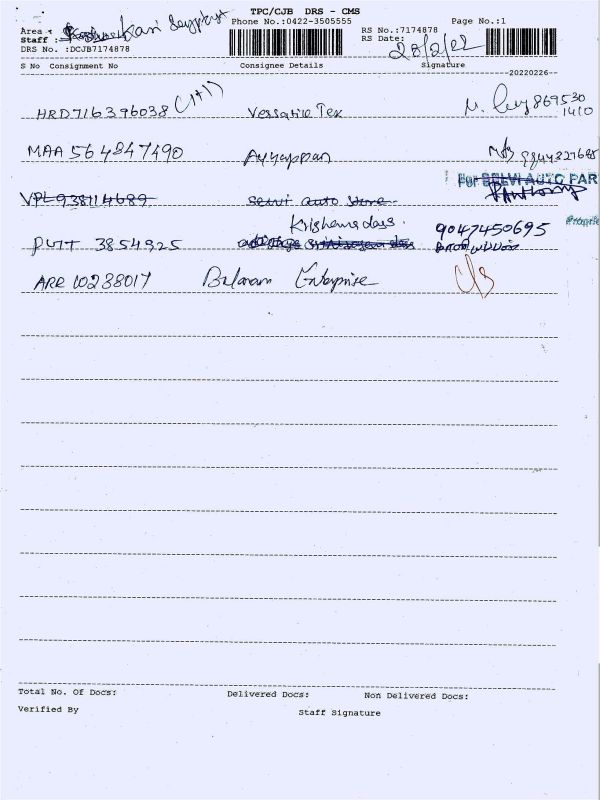 TPC/CJB DRS - CMS
Phone No.:0422-3505555 Page No.:1
Area :
Staff : RS No.:7174878
DRS No. :DCJB7174878 RS Date: 28/2/22
S No Consignment No Consignee Details Signature
--20220226--
HRD716396038 (1+1) Versatile Tex 869530
1410
MAA 564847490 Ayyappan
For SELVI AUTO PAR
VPL938114689 Selvi auto store
Krishnadass. 9047450695
PUTT 3854925
ARR 10238017 Balaram Enterprise
Total No. Of Docs: Delivered Docs: Non Delivered Docs:
Verified By Staff Signature